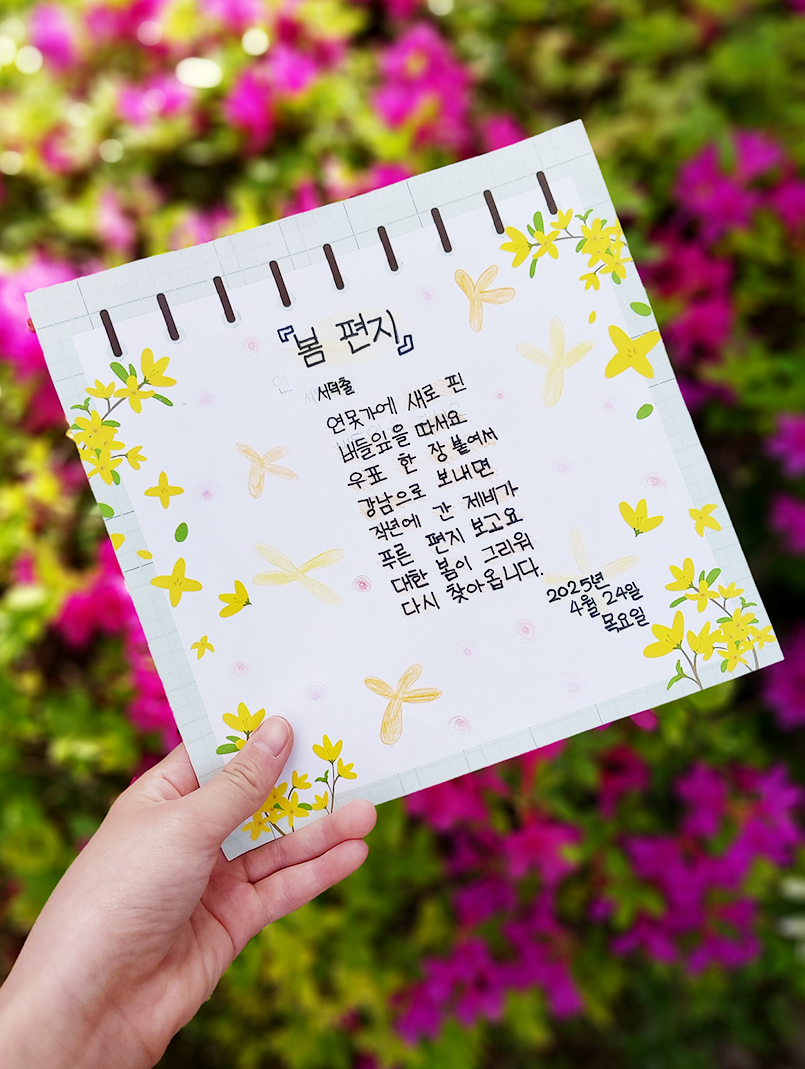 『봄 편지』
서덕출
연못가에 새로 핀
버들잎을 따서요
우표 한 장 붙여서
강남으로 보내면
작년에 간 제비가
푸른 편지 보고요
대한 봄이 그리워
다시 찾아옵니다.
2025년
4월 24일
목요일